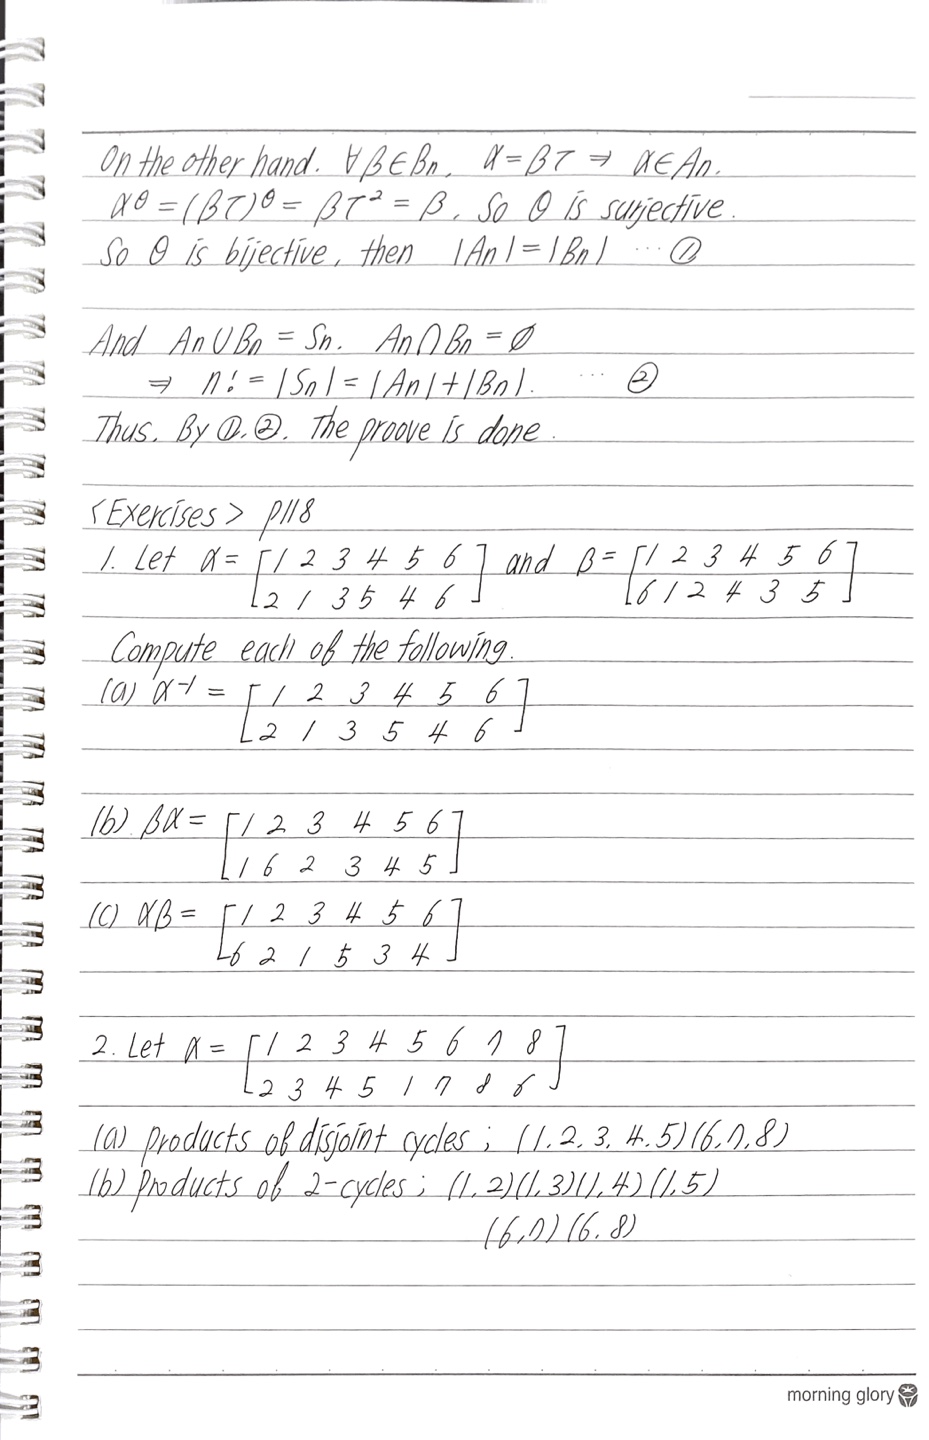 On the other hand. ∀β∈Bn, α=βτ ⇒ α∈An.
αθ =(βτ)θ = βτ² = β, So θ is surjective.
So θ is bijective, then |An|=|Bn| ··· ①
And An∪Bn = Sn. An∩Bn = ∅
⇒ n! = |Sn| = |An|+|Bn|. ··· ②
Thus. By ①,②. The proove is done.
<Exercises> p118
1. Let α= [1 2 3 4 5 6] and β= [1 2 3 4 5 6]
[2 1 3 5 4 6] [6 1 2 4 3 5]
Compute each of the following.
(a) α⁻¹ = [1 2 3 4 5 6]
[2 1 3 5 4 6]
(b) βα= [1 2 3 4 5 6]
[1 6 2 3 4 5]
(c) αβ= [1 2 3 4 5 6]
[6 2 1 5 3 4]
2. Let α= [1 2 3 4 5 6 7 8]
[2 3 4 5 1 7 8 6]
(a) products of disjoint cycles ; (1.2.3.4.5)(6,7,8)
(b) products of 2-cycles ; (1,2)(1,3)(1,4)(1,5)
(6,7)(6.8)
morning glory